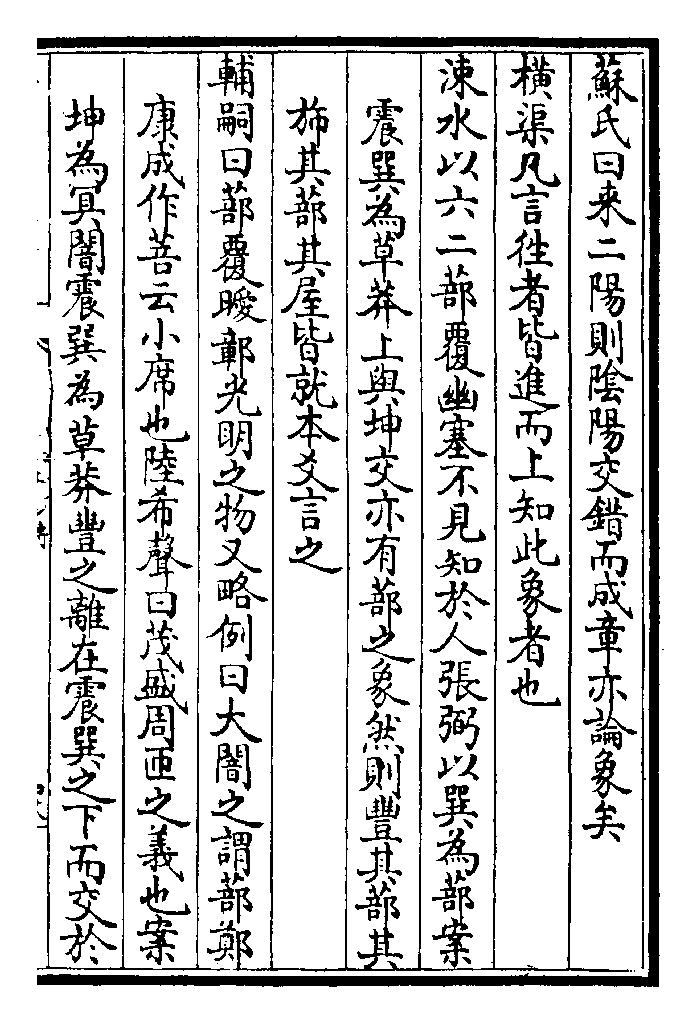 蘇氏曰来二陽則陰陽交錯而成章亦論象矣
横渠凡言徃者皆進而上知此象者也
涑水以六二蔀覆幽塞不見知於人張弼以巽為蔀案
震巽為草莽上與坤交亦有蔀之象然則豐其蔀其
斾其蔀其屋皆就本爻言之
輔嗣曰蔀覆曖鄣光明之物又略例曰大闇之謂蔀鄭
康成作菩云小席也陸希聲曰茂盛周匝之義也案
坤為冥闇震巽為草莽豐之離在震巽之下而交於